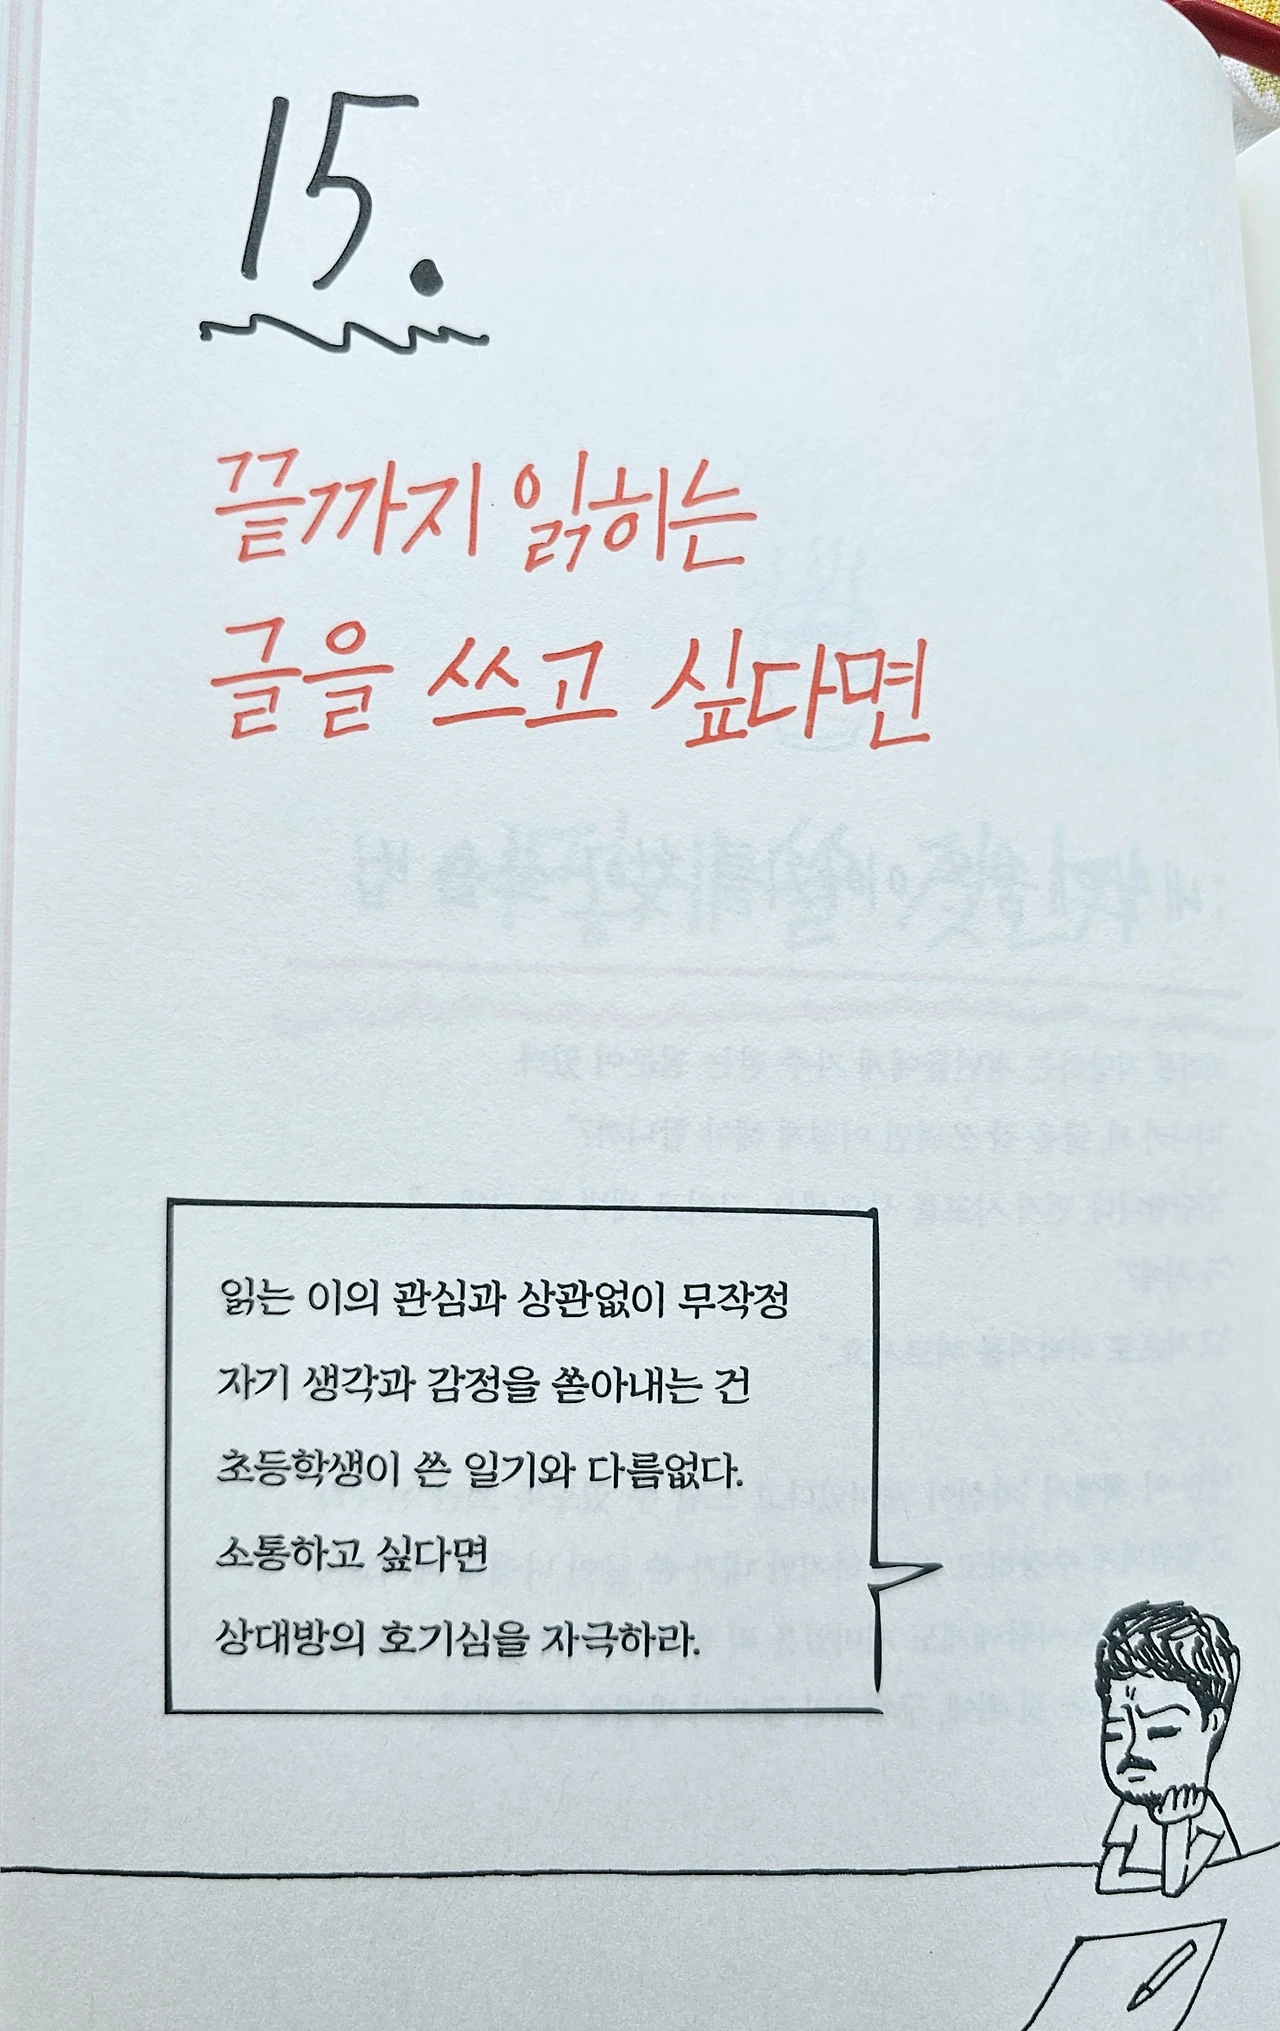 15.
끝까지 읽히는
글을 쓰고 싶다면
읽는 이의 관심과 상관없이 무작정
자기 생각과 감정을 쏟아내는 건
초등학생이 쓴 일기와 다름없다.
소통하고 싶다면
상대방의 호기심을 자극하라.